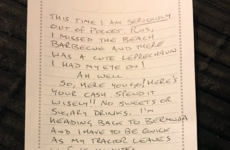 THIS TIME I AM SERIOUSLY
OUT OF POCKET. PLUS,
I MISSED THE BEACH
BARBECUE AND THERE
WAS A CUTE LEPRECHAUN
I HAD MY EYE ON!
AH WELL
SO, HERE YOU GO! HERE'S
YOUR CASH SPEND IT
WISELY!! NO SWEETS OR
SUGARY DRINKS. I'M
HEADING BACK TO BERMUDA
AND I HAVE TO BE QUICK
AS MY TRACTOR LEAVES